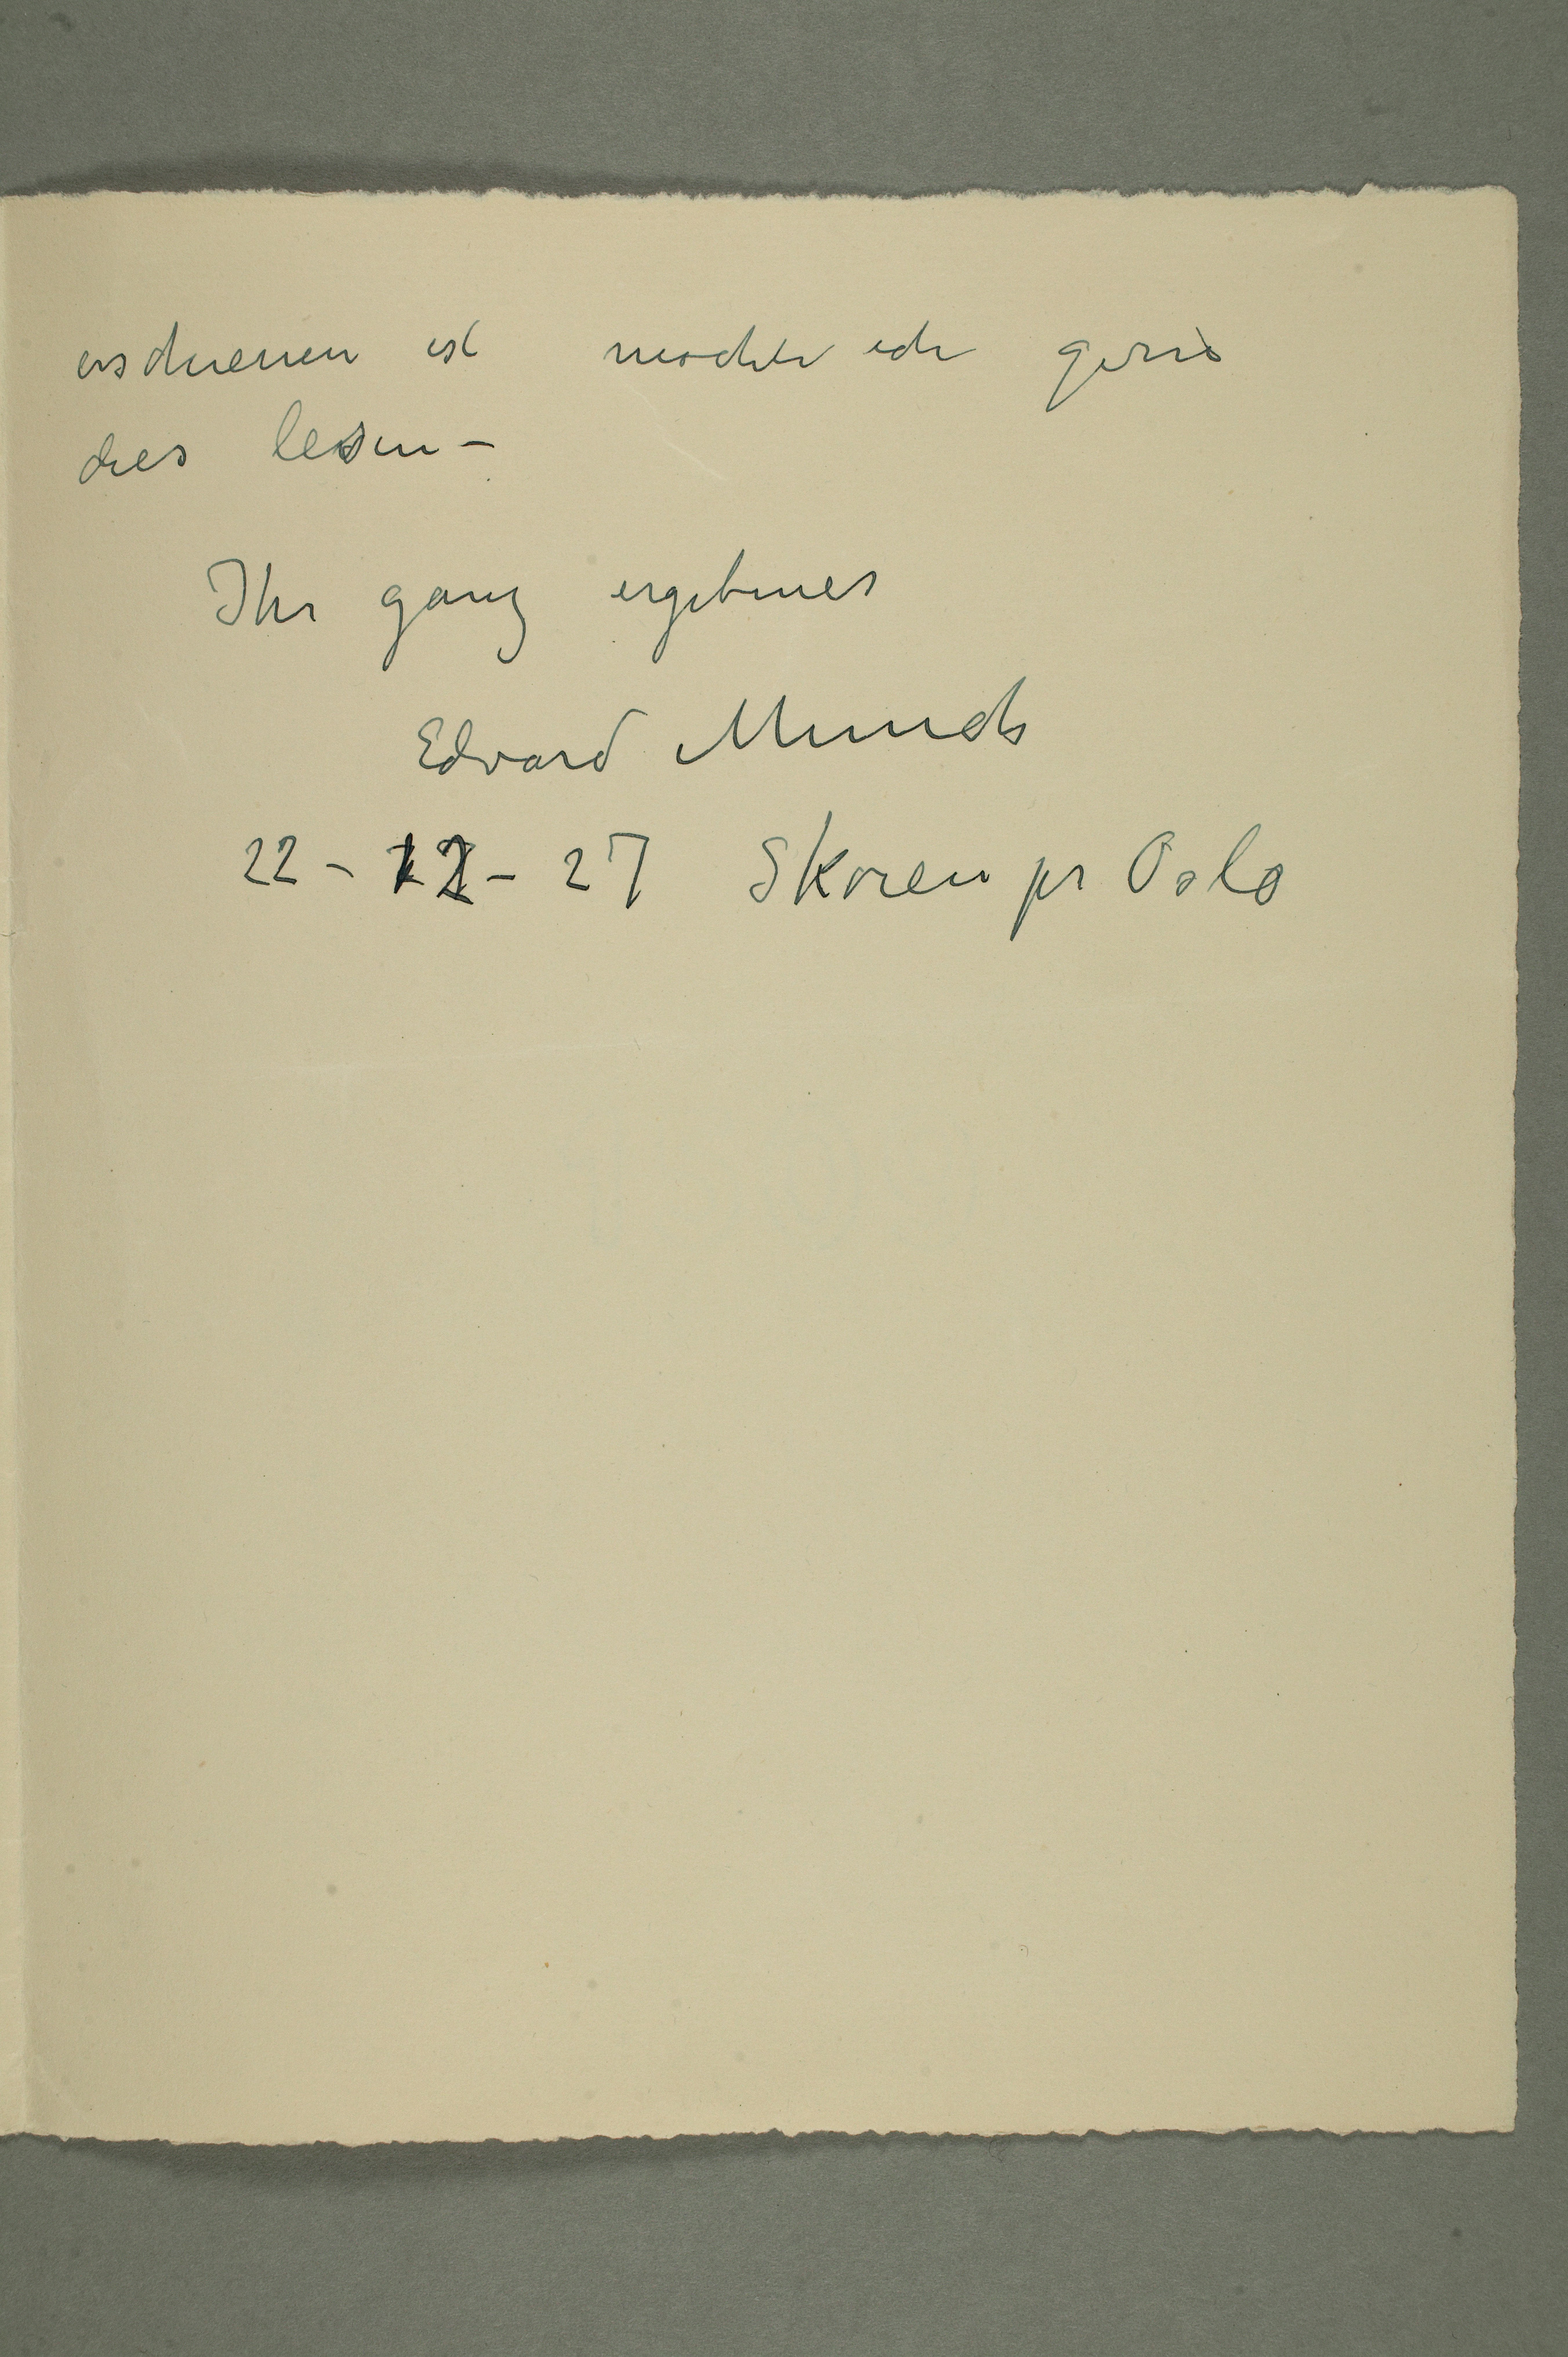 erschienen ist möchte ich gerne
dies lesen –
Ihr ganz ergebener
Edvard Munch
22 – 12 – 27 Skøien pr Oslo